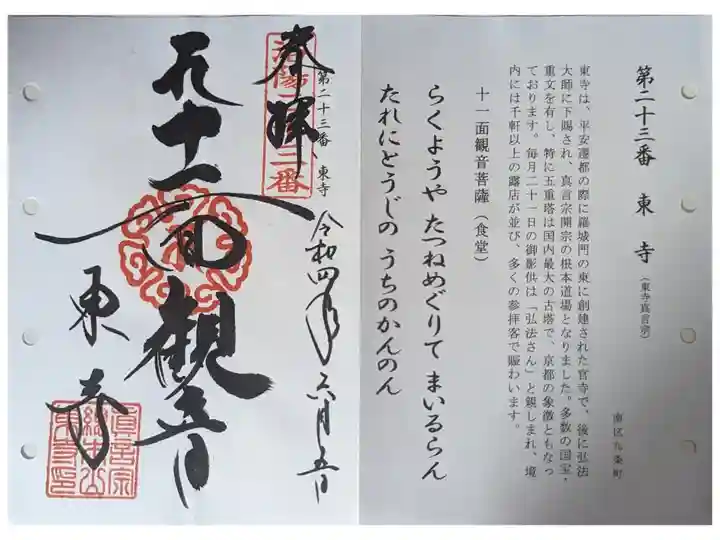 第二十三番 東寺(東寺真言宗)
南区九条町
東寺は、平安遷都の際に羅城門の東に創建された官寺で、後に弘法
大師に下賜され、真言宗開宗の根本道場となりました。多数の国宝・
重文を有し、特に五重塔は国内最大の古塔で、京都の象徴ともなっ
ております。毎月二十一日の御影供は「弘法さん」と親しまれ、境
内には千軒以上の露店が並び、多くの参拝客で賑わいます。
十一面観音菩薩(食堂)
らくようや たつねめぐりて まいるらん
たれにとうじの うちのかんのん
令和四年六月五日
第二十三番、東寺
奉拝
十一面観音
東寺
真言宗
総本山
東寺印